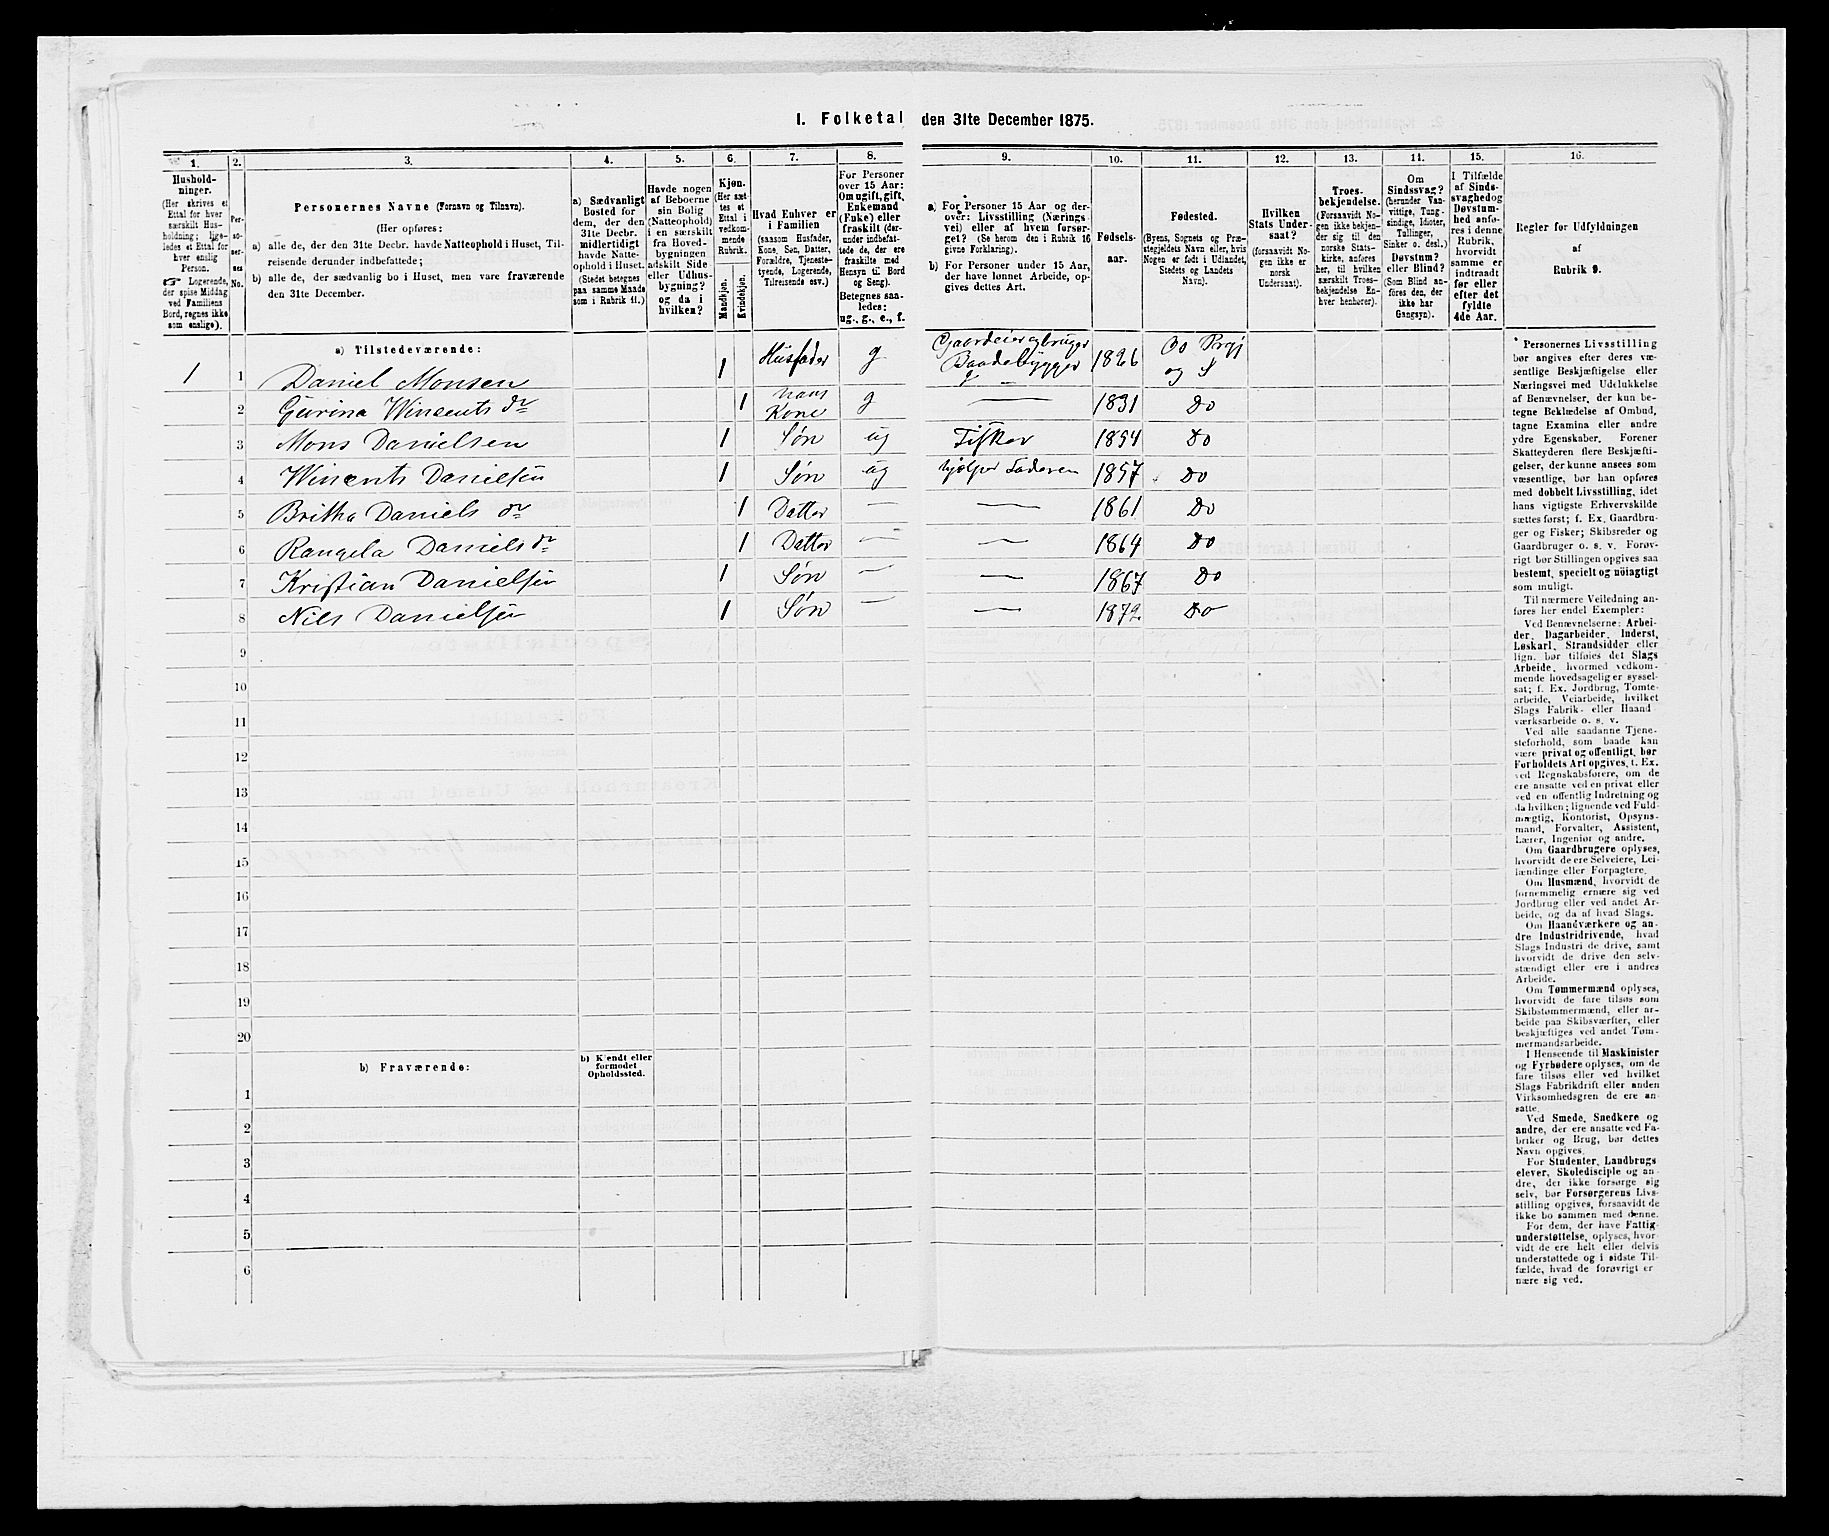 I. Folketal den 31te December 1875.
1. 2. 3. 4. 5. 6. 7. 8. 9. 10. 11. 12. 13. 14. 15. 16.
Hushold-
ninger.
(Her skrives et
Ettal for hver
særskilt Hus-
holdning; lige-
ledes et Ettal for
hver enslig
Person.
☞ Logerende,
der spise Middag
ved Familiens
Bord, regnes ikke
som enslige).
Per-
so-
ner-
nes
No.
Personernes Navne (Fornavn og Tilnavn).
(Her opføres:
a) alle de, der den 31te Decbr. havde Natteophold i Huset, Til-
reisende derunder indbefattede;
b) alle de, der sædvanlig bo i Huset, men vare fraværende
den 31te December.
a) Sædvanligt
Bosted for
dem, der den
31te Decbr.
midlertidigt
havde Natte-
ophold i Huset.
(Stedet betegnes
paa samme Maade
som i Rubrik 11.)
Havde nogen
af Beboerne
sin Bolig
(Natteophold)
i en særskilt
fra Hoved-
bygningen
adskilt Side-
eller Udhus-
bygning?
og da i
hvilken?
Kjøn.
(Her sæt-
tes et
Ettal i
vedkom-
mende
Rubrik.
Mandkjøn.
Kvindekjøn.
Hvad Enhver er
i Familien
(saasom Husfader,
Kone, Søn, Datter,
Forældre, Tjeneste-
tyende, Logerende,
Tilreisende osv.)
For Personer
over 15 Aar:
Om ugift, gift,
Enkemand
(Enke) eller
fraskilt (der-
under indbefat-
tede de, der ere
fraskilte med
Hensyn til Bord
og Seng).
Betegnes saa-
ledes:
ug., g., e., f.
a) For Personer 15 Aar og der-
over: Livsstilling (Nærings-
vei) eller af hvem forsør-
get? (Se herom den i Rubrik 16
givne Forklaring).
b) For Personer under 15 Aar,
der have lønnet Arbeide, op-
gives dettes Art.
Fødsels-
aar.
Fødested.
(Byens, Sognets og Præ-
stegjeldets Navn eller, hvis
Nogen er født i Udlandet,
Stedets og Landets
Navn).
Hvilken
Stats Under-
saat?
(forsaavidt No-
gen ikke er
norsk
Undersaat).
Troes-
bekjendelse.
(Forsaavidt No-
gen ikke bekjen-
der sig til den
norske Stats-
kirke, anføres
her, til hvilken
særskilt Troes-
bekjendelse En-
hver henhører).
Om
Sindssvag?
(herunder Van-
vittige, Tung-
sindige, Idioter,
Tullinger,
Sinker o. desl.)
Døvstum?
eller Blind?
(Som Blind an-
føres den, der
ikke har
Gangsyn).
I Tilfælde
af Sinds-
svaghed og
Døvstum-
hed anfø-
res i denne
Rubrik,
hvorvidt
samme er
indtraadt
før eller
efter det
fyldte
4de Aar.
Regler for Udfyldningen
af
Rubrik 9.
a) Tilstedeværende:
1 1 Daniel Monsen 1 Husfader g Gaardeier og bruger Baadebygger 1826 Bø og S
2 Gurina Winsents dr 1 hans Kone g — 1831 Do
3 Mons Danielsen 1 Søn ug Fisker 1854 Do
4 Winsents Danielsen 1 Søn ug hjelper Faderen 1857 Do
5 Britha Daniels dr 1 Datter — — 1861 Do
6 Rangela Daniels dr 1 Datter — — 1864 Do
7 Kristian Danielsen 1 Søn — — 1867 Do
8 Nils Danielsen 1 Søn — — 1872 Do
9
10
11
12
13
14
15
16
17
18
19
20
b) Fraværende:
b) Kjendt eller
formodet
Opholdssted.
1
2
3
4
5
6
Personernes Livsstilling
bør angives efter deres væ-
sentlige Beskjæftigelse eller
Næringsvei med Udelukkelse
af Benævnelser, der kun be-
tegne Beklædelse af Ombud,
tagne Examina eller andre
ydre Egenskaber. Forener
Skatteyderen flere Beskjæfti-
gelser, der kunne ansees som
væsentlige, bør han opføres
med dobbelt Livsstilling, idet
hans vigtigste Erhvervskilde
sættes først; f. Ex. Gaardbru-
ger og Fisker; Skibsreder og
Gaardbruger o. s. v. Forøv-
rigt bør Stillingen opgives saa
bestemt, specielt og nöiagtigt
som muligt.
Til nærmere Veiledning an-
føres her endel Exempler:
Ved Benævnelserne: Arbei-
der, Dagarbeider, Inderst,
Løskarl, Strandsidder eller
lign. bør tilføies det Slags
Arbeide, hvormed vedkom-
mende hovedsagelig er syssel-
sat; f. Ex. Jordbrug, Tomte-
arbeide, Veiarbeide, hvilket
Slags Fabrik- eller Haand-
værksarbeide o. s. v.
Ved alle saadanne Tjene-
steforhold, som baade kan
være privat og offentligt, bør
Forholdets Art opgives, f. Ex.
ved Regnskabsførere, om de
ere ansatte ved en privat eller
ved en offentlig Indretning og
da hvilken; lignende ved Fuld-
mægtig, Kontorist, Opsyns-
mand, Forvalter, Assistent,
Lærer, Ingeniør og andre.
Om Gaardbrugere oplyses,
hvorvidt de ere Selveiere, Lei-
lændinge eller Forpagtere.
Om Husmænd, hvorvidt de
fornemmelig ernære sig ved
Jordbrug eller ved andet Ar-
beide, og da af hvad Slags.
Om Haandværkere og an-
dre Industridrivende, hvad
Slags Industri de drive, samt
hvorvidt de drive den selv-
stændigt eller ere i andres
Arbeide.
Om Tømmermænd oplyses,
hvorvidt de fare tilsøs som
Skibstømmermænd, eller ar-
beide paa Skibsværfter, eller
beskjæftiges ved andet Tøm-
mermandsarbeide.
I Henseende til Maskinister
og Fyrbødere oplyses, om de
fare tilsøs eller ved hvilket
Slags Fabrikdrift eller anden
Virksomhedsgren de ere an-
satte.
Ved Smede, Snedkere og
andre, der ere ansatte ved Fa-
briker og Brug, bør dettes
Navn opgives.
For Studenter, Landbrugs-
elever, Skoledisciple og an-
dre, der ikke forsørge sig
selv, bør Forsørgerens Livs-
stilling opgives, forsaavidt de
ikke bo sammen med denne.
For dem, der have Fattig-
understøttelse, oplyses, hvor-
vidt de ere helt eller delvis
understøttede og i sidste Til-
fælde, hvad de forøvrigt er-
nære sig ved.